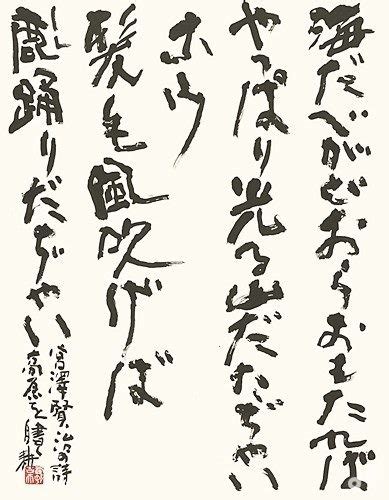 海だべがどおらおもたれば
やっぱり光る山だたぢゃい
ホウ
髪毛風吹げば
鹿踊りだぢゃい
宮澤賢治の詩
高原を書く 耕